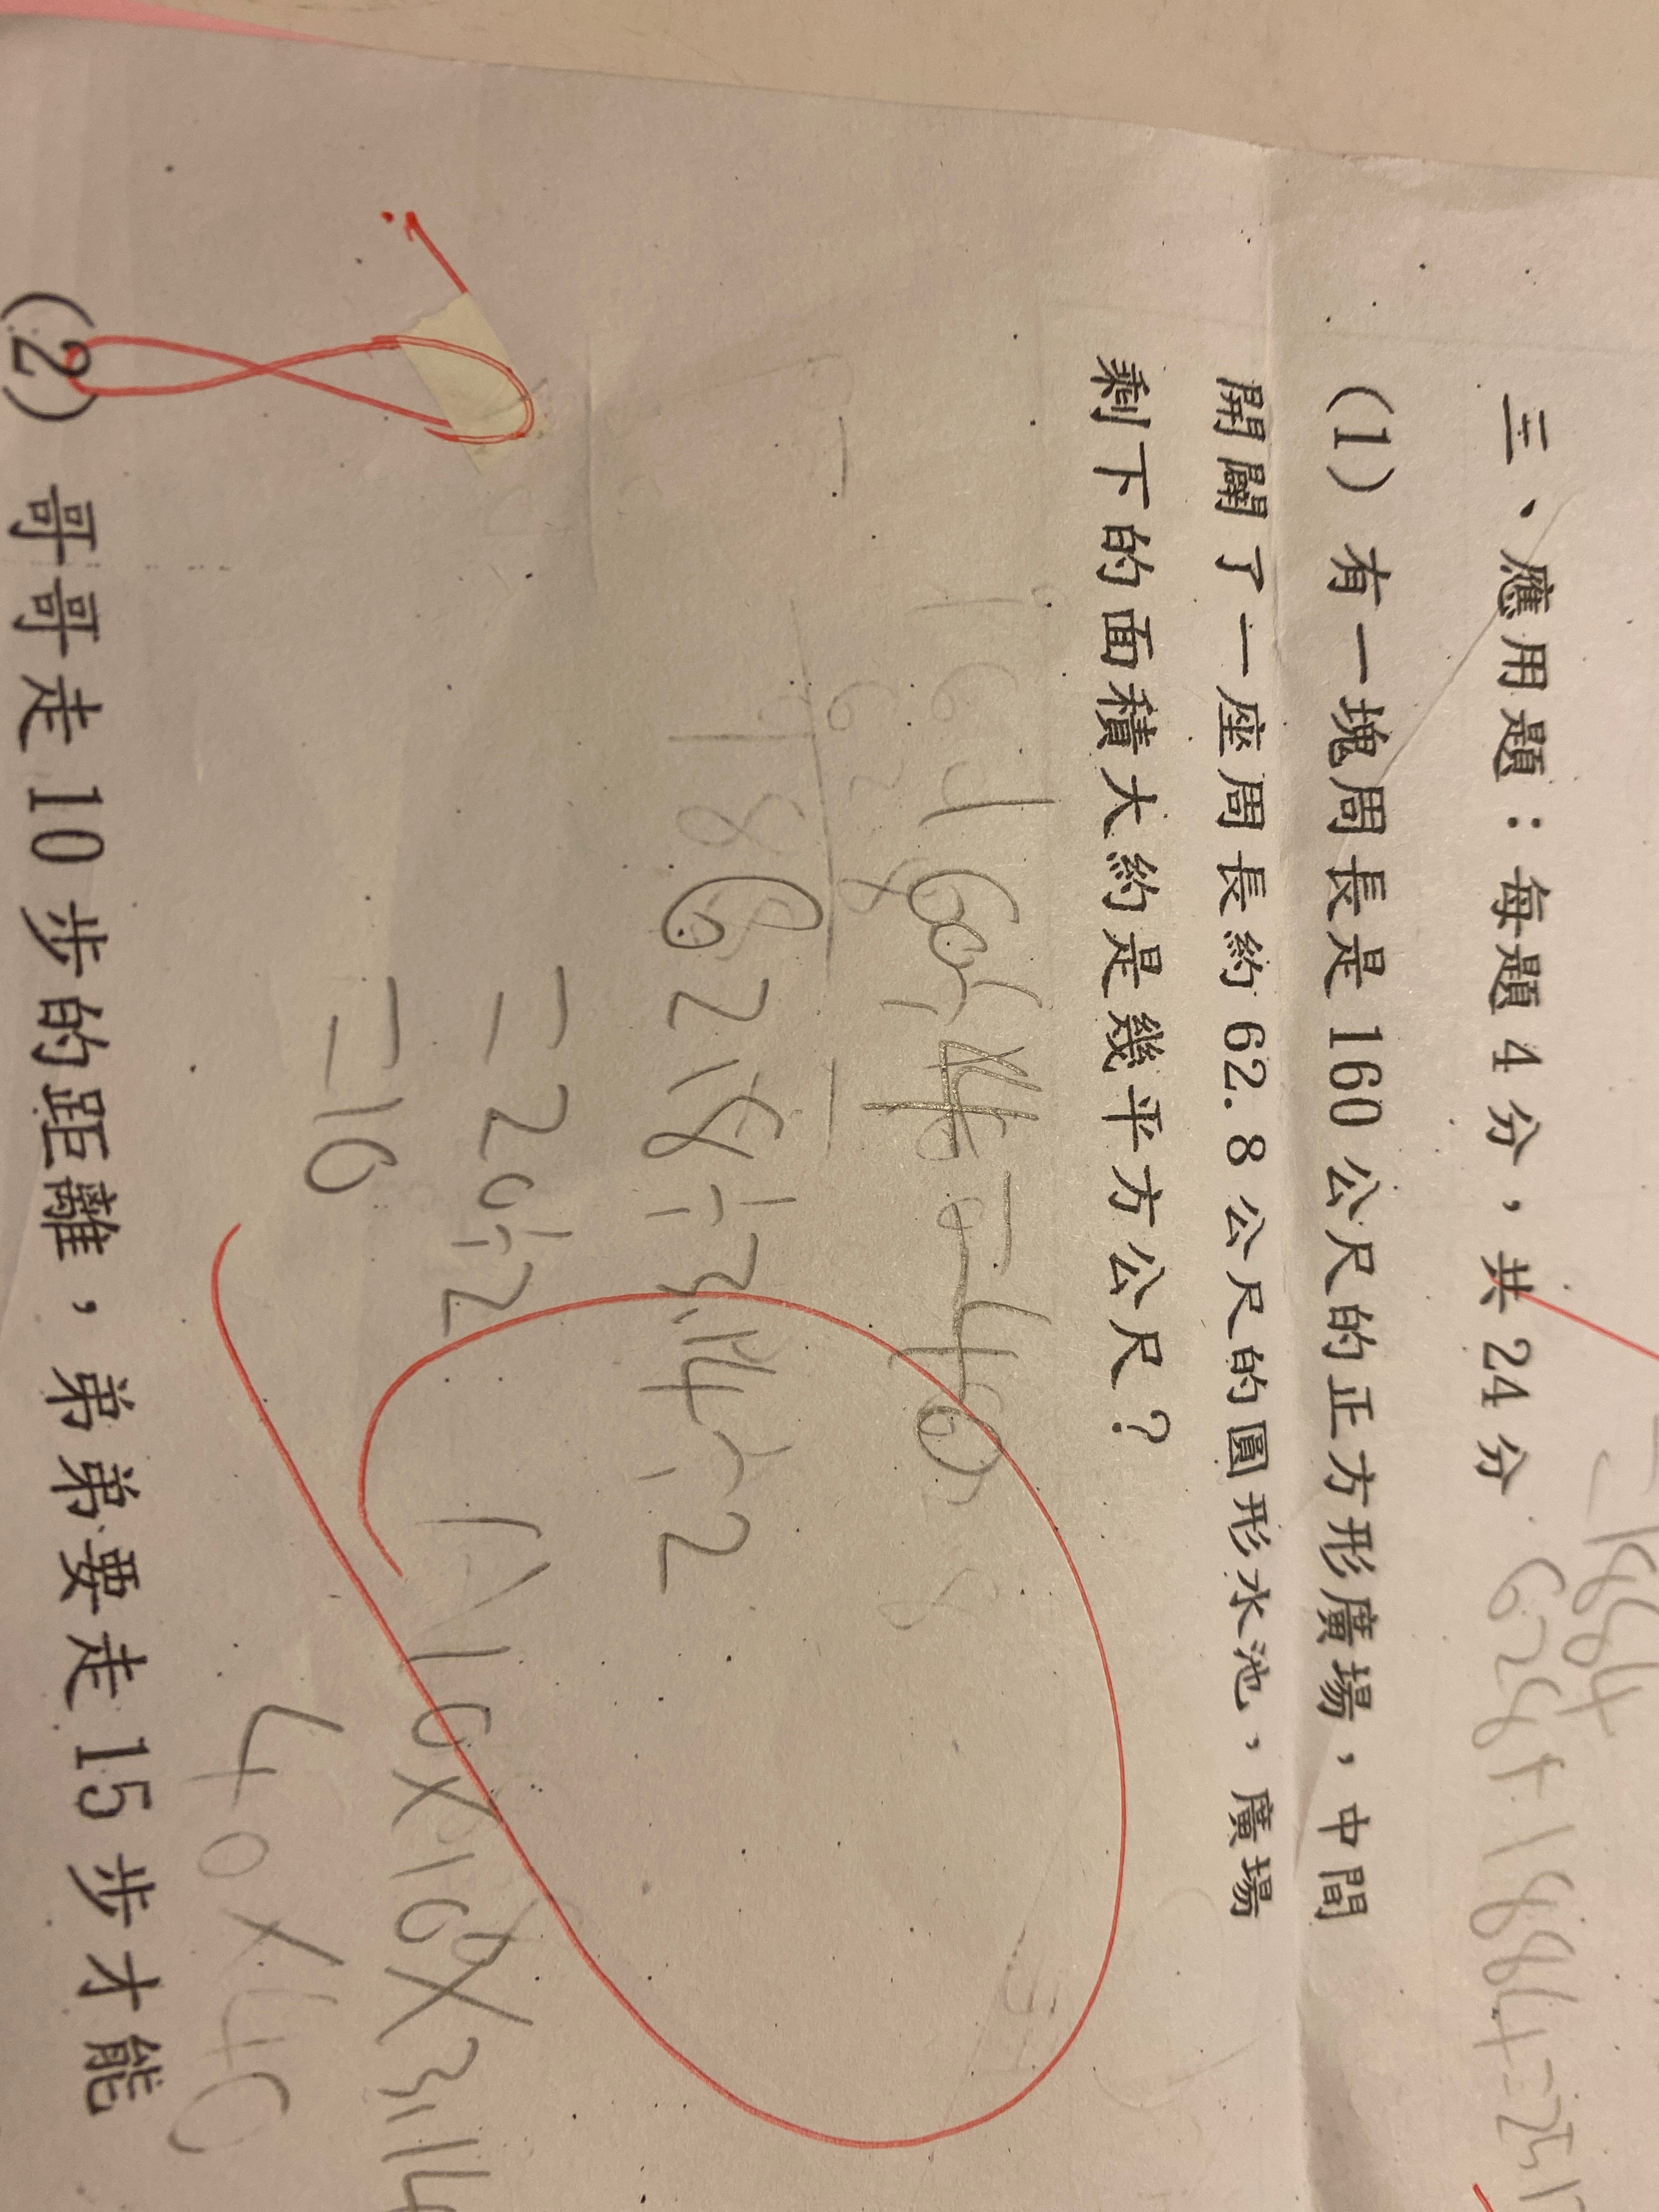 三、應用題：每題 4 分，共 24 分
(1) 有一塊周長是 160 公尺的正方形廣場，中間
開闢了一座周長約 62.8 公尺的圓形水池，廣場
剩下的面積大約是幾平方公尺？
160÷4=40
62.8÷3.14÷2
=20÷2
=10
10×10×3.14
40×40
(2) 哥哥走 10 步的距離，弟弟要走 15 步才能